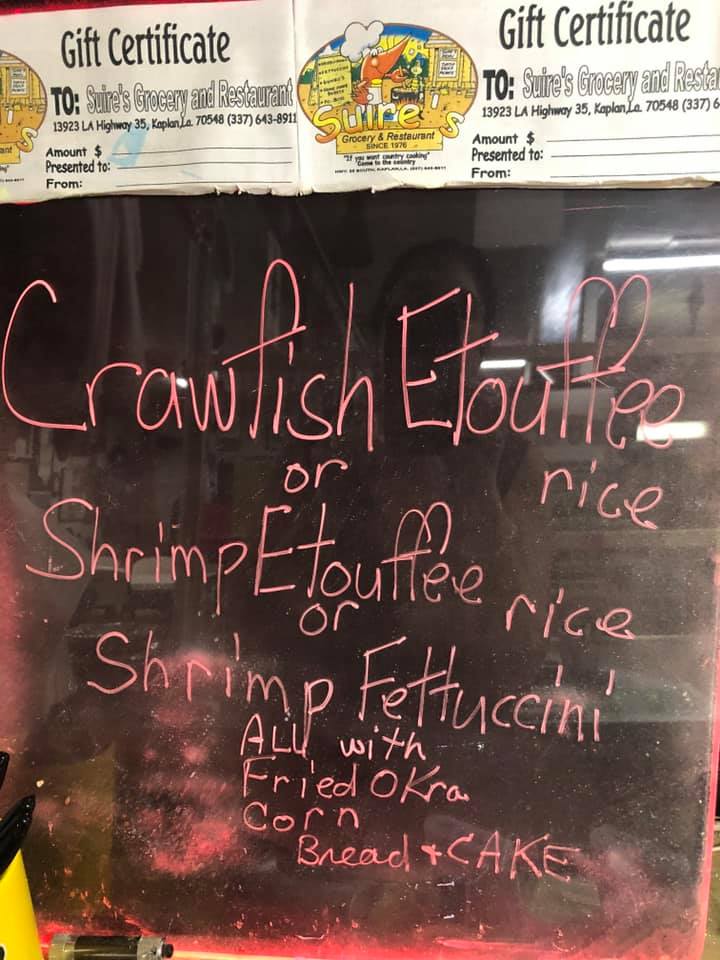 Gift Certificate
TO: Suire's Grocery and Restaurant
13923 LA Highway 35, Kaplan, La. 70548 (337) 643-8911
Amount $
Presented to:
From:
Suire's
Grocery & Restaurant
SINCE 1976
"If you want country cooking"
"Come to the country"
Gift Certificate
TO: Suire's Grocery and Resta
13923 LA Highway 35, Kaplan, La. 70548 (337) 6
Amount $
Presented to:
From:
Crawfish Etouffee
or rice
Shrimp Etouffee
or rice
Shrimp Fettuccini
ALL with
Fried OKra
Corn
Bread + CAKE